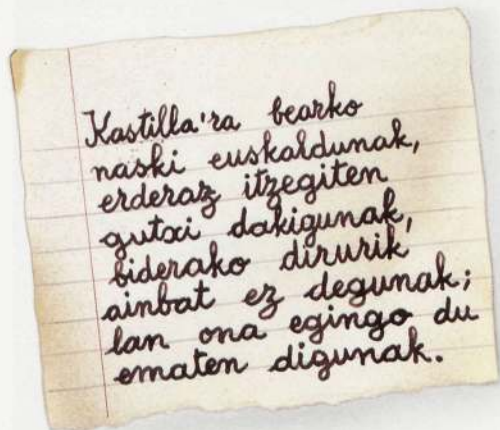 Kastilla'ra bearko
naski euskaldunak,
erderaz itzegiten
gutxi dakigunak,
biderako dirurik
ainbat ez degunak;
lan ona egingo du
ematen digunak.